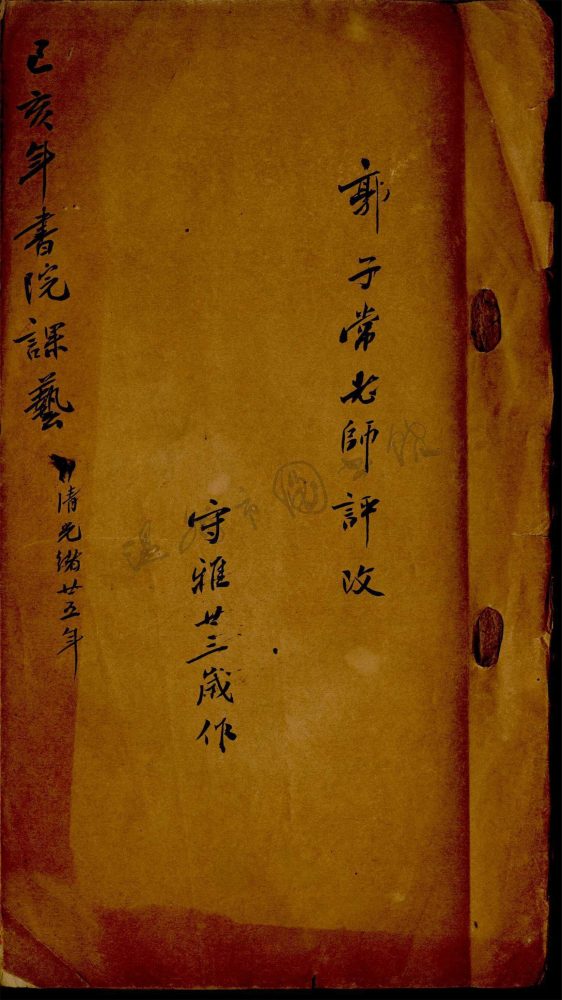 郭子常老師評改
守雅廿三歲作
己亥年書院課藝
清光緒廿五年